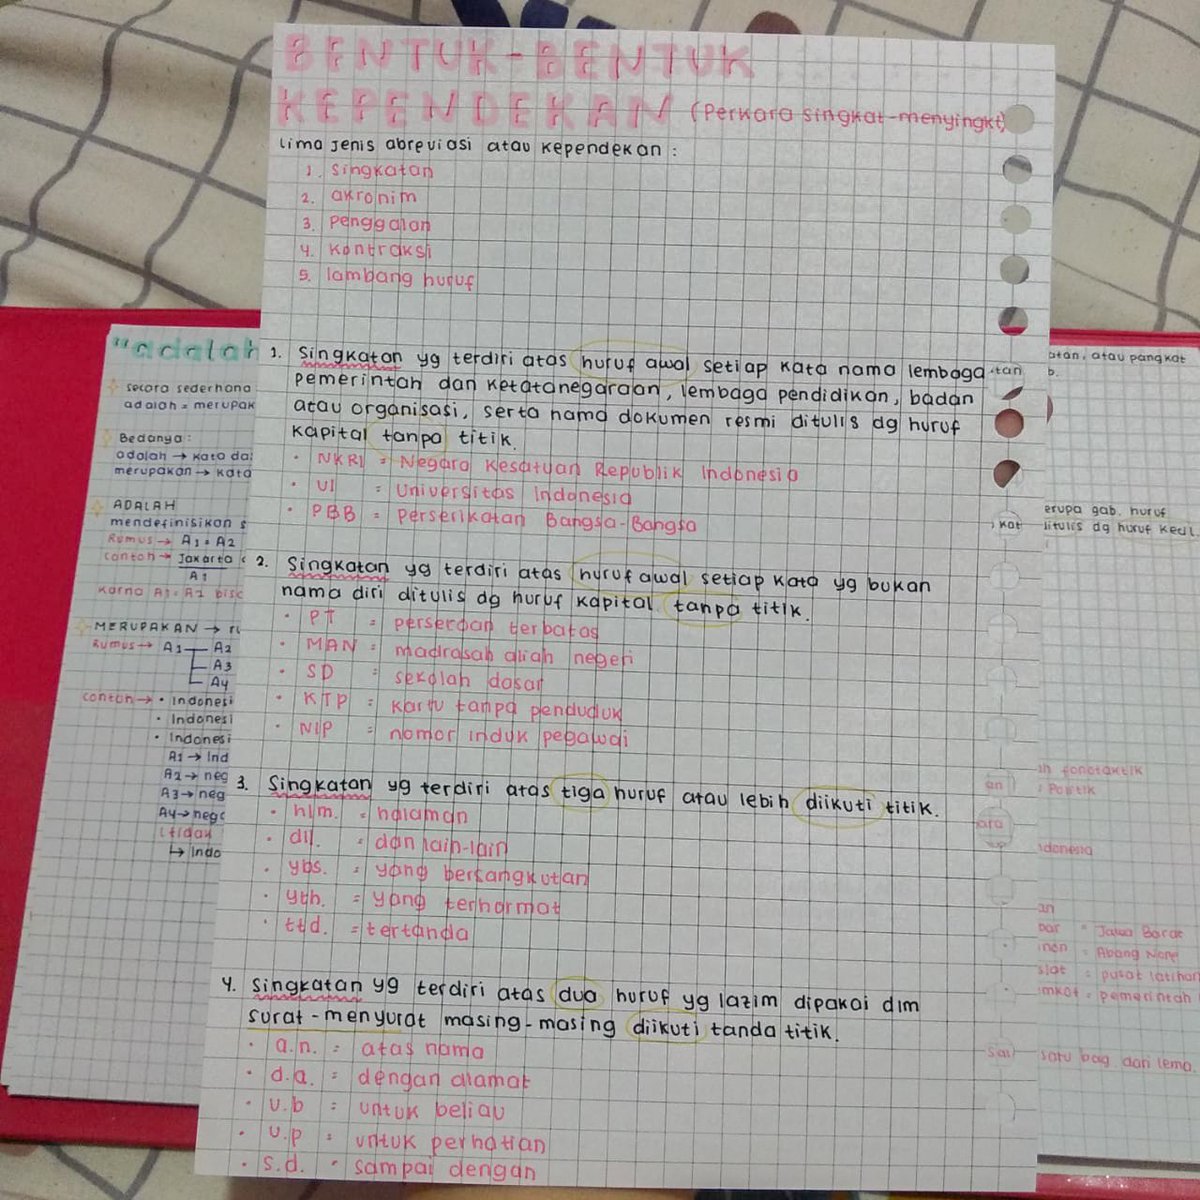 BENTUK-BENTUK
KEPENDEKAN (Perkara singkat-menyingkt)
Lima jenis abreviasi atau kependekan :
1. singkatan
2. akronim
3. penggalan
4. kontraksi
5. lambang huruf
1. Singkatan yg terdiri atas huruf awal setiap kata nama lembaga
pemerintah dan ketatanegaraan, lembaga pendidikan, badan
atau organisasi, serta nama dokumen resmi ditulis dg huruf
kapital tanpa titik.
• NKRI = Negara Kesatuan Republik Indonesia
• UI = Universitas Indonesia
• PBB = Perserikatan Bangsa-Bangsa
2. Singkatan yg terdiri atas huruf awal setiap kata yg bukan
nama diri ditulis dg huruf kapital tanpa titik.
• PT = perseroan terbatas
• MAN = madrasah aliah negeri
• SD = sekolah dasar
• KTP = kartu tanpa penduduk
• NIP = nomor induk pegawai
3. Singkatan yg terdiri atas tiga huruf atau lebih diikuti titik.
• hlm. = halaman
• dll. = dan lain-lain
• ybs. = yang bersangkutan
• yth. = yang terhormat
• ttd. = tertanda
4. Singkatan yg terdiri atas dua huruf yg lazim dipakai dlm
surat-menyurat masing-masing diikuti tanda titik.
• a.n. = atas nama
• d.a. = dengan alamat
• u.b = untuk beliau
• u.p = untuk perhatian
• s.d. = sampai dengan
"adalah
secara sederhana
adalah = merupak
Bedanya :
adalah → kata da
merupakan → kata
ADALAH
mendefinisikan s
Rumus → A1 = A2
contoh → Jakarta
A1
karna A1 = A2 bisa
MERUPAKAN →
Rumus → A1 A2
A3
A4
contoh → • Indonesi
• Indonesi
• Indonesi
A1 → Ind
A2 → neg
A3 → neg
A4 → nega
(tidak
↳ Indo
atan, atau pangkat
erupa gab. huruf
ditulis dg huruf kecil.
fonotaktik
: Politik
ndonesia
bar = Jawa Barat
nen = Abang None
slat = pusat latihan
mkot = pemerintah
satu bag. dari lema.